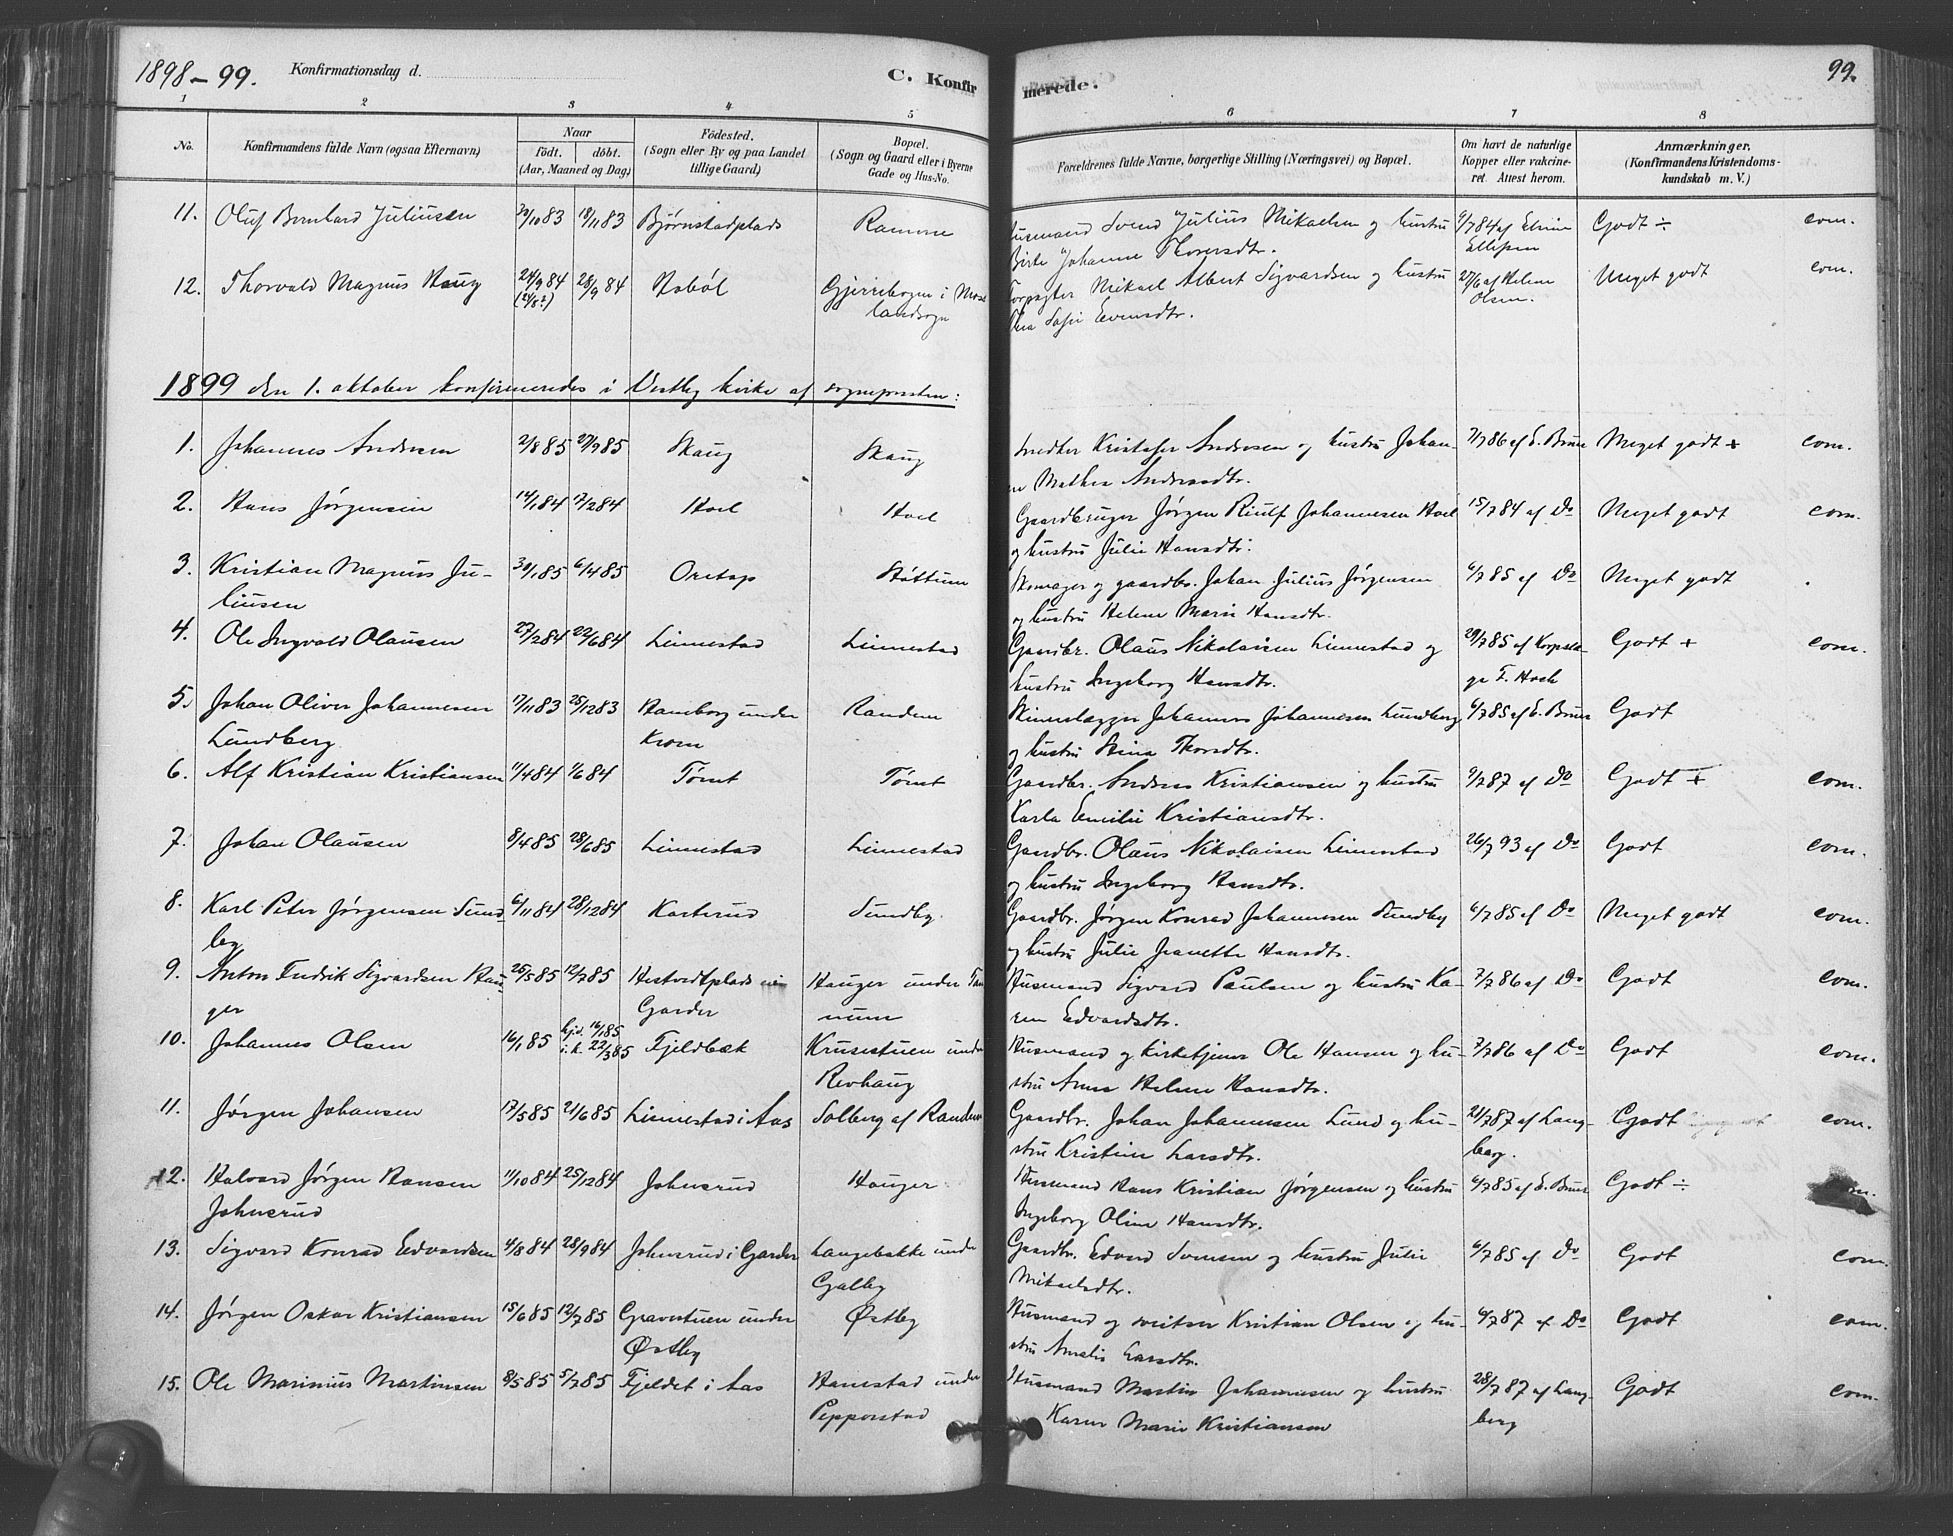 1898–99. Konfirmationsdag d. C. Konfirmerede. 99.
1 2 3 4 5 6 7 8
No. Konfirmandens fulde Navn (ogsaa Efternavn) Naar født. døbt. (Aar, Maaned og Dag) Födested. (Sogn eller By og paa Landet tillige Gaard) Bopæl. (Sogn og Gaard eller i Byerne Gade og Hus-No. Forældrenes fulde Navne, borgerlige Stilling (Næringsvei) og Bopæl. Om havt de naturlige Kopper eller vakcineret. Attest herom. Anmærkninger. (Konfirmandens Kristendomskundskab m. V.)
11. Oluf Bernhard Juliusen 30/10 83 18/11 83 Bjørnstadplads Ramme Husmand Svend Julius Mikaelsen og hustru 9/7 84 af Godt ÷ com.
Johanne Thorersdtr. Ellefsen
12. Thorvald Magnus Haug 24/9 84 28/9 84 Gjerrebogen i Moss Mikael Albert Sigvardsen og hustru 27/6 af Helene Meget godt com.
(24/8?) landsogn Sofie Evensdtr. Olsen.
1899 den 1. oktober konfirmeredes i Vestby kirke af sognepresten:
1. Johannes Andersen 2/8 85 27/9 85 Skaug Skaug Snedker Kristofer Andersen og hustru Johan- 7/7 86 af E. Bruun Meget godt + com.
ne Mathea Andersdtr.
2. Hans Jørgensen 14/1 84 17/2 84 Hoel Hoel Gaardbruger Jørgen Johannesen Hoel 15/7 84 af Do Meget godt com.
og hustru Julie Hansdtr.
3. Kristian Magnus Ju- 30/1 85 6/4 85 Oretop Støttum Skomager og gaardbr. Johan Julius Jørgensen 6/7 85 af Do Meget godt .
liusen og hustru Helene Marie Hansdtr.
4. Ole Ingvald Olausen 27/2 84 22/6 84 Linnestad Linnestad Gaardbr. Olaus Nikolaisen Linnestad og 29/7 85 af Korpslæ- Godt + com.
hustru Ingeborg Hansdtr. ge F. Hoch
5. Johan Oliver Johannesen 17/11 83 25/12 83 Hamborg under Randem Skinnelægger Johannes Johannesen Lundberg 6/7 85 af E. Bruun Godt
Lundberg Krom og hustru Stina Thorsdtr.
6. Alf Kristian Kristiansen 11/4 84 1/6 84 Tømt Tømt Gaardbr. Anders Kristiansen og hustru 9/7 87 af Do Godt + com.
Karla Emilie Kristiansdtr.
7. Johan Olausen 8/4 85 28/6 85 Linnestad Linnestad Gaardbr. Olaus Nikolaisen Linnestad 26/7 93 af Do Godt com.
og hustru Ingeborg Hansdtr.
8. Karl Peter Jørgensen Sund- 6/11 84 28/12 84 Kasterud Sundby. Gaardbr. Jørgen Konrad Johannesen Sundby 6/7 85 af Do Meget godt com.
by og hustru Julie Jeanette Hansdtr.
9. Anton Fredrik Sigvardsen Hau- 25/5 85 12/7 85 Hestvedtplads i Hauger under Tan- Husmand Sigvard Paulsen og hustru Ka- 7/7 86 af Do Godt com.
ger Garder num ren Edvardsdtr.
10. Johannes Olsen 16/1 85 hjd. 16/1 85 Fjeldbæk Krusestuen under Husmand og kirketjener Ole Hansen og hu- 7/7 86 af Do Godt com.
i. k. 22/3 85 Revhaug stru Anne Helene Hansdtr.
11. Jørgen Johansen 17/5 85 21/6 85 Linnestad i Aas Solberg af Randem Gaardbr. Johan Johannesen Lund og hu- 21/7 87 af Lang- Godt com.
stru Kristine Larsdtr. berg.
12. Halvard Jørgen Hansen 11/10 84 25/12 84 Johnsrud Hauger Husmand Hans Kristian Jørgensen og hustru 6/7 85 af E. Bruun Godt ÷ com.
Johnsrud Ingeborg Oline Hansdtr.
13. Sigvard Konrad Edvardsen 4/8 84 28/9 84 Johnsrud i Garder Langebakke under Gaardbr. Edvard Svensen og hustru Julie 6/7 85 af Do Godt com.
Galby Mikaelsdtr.
14. Jørgen Oskar Kristiansen 15/6 85 12/7 85 Graverstuen under Østby Husmand og sveitser Kristian Olsen og hu- 6/7 87 af Do Godt com.
Østby stru Amalie Larsdtr.
15. Ole Marinius Martinsen 8/5 85 5/7 85 Fjeldet i Aas Hanestad under Husmand Martin Johannesen og hustru 28/7 87 af Lang- Godt com.
Pepperstad Karen Marie Kristiansen berg